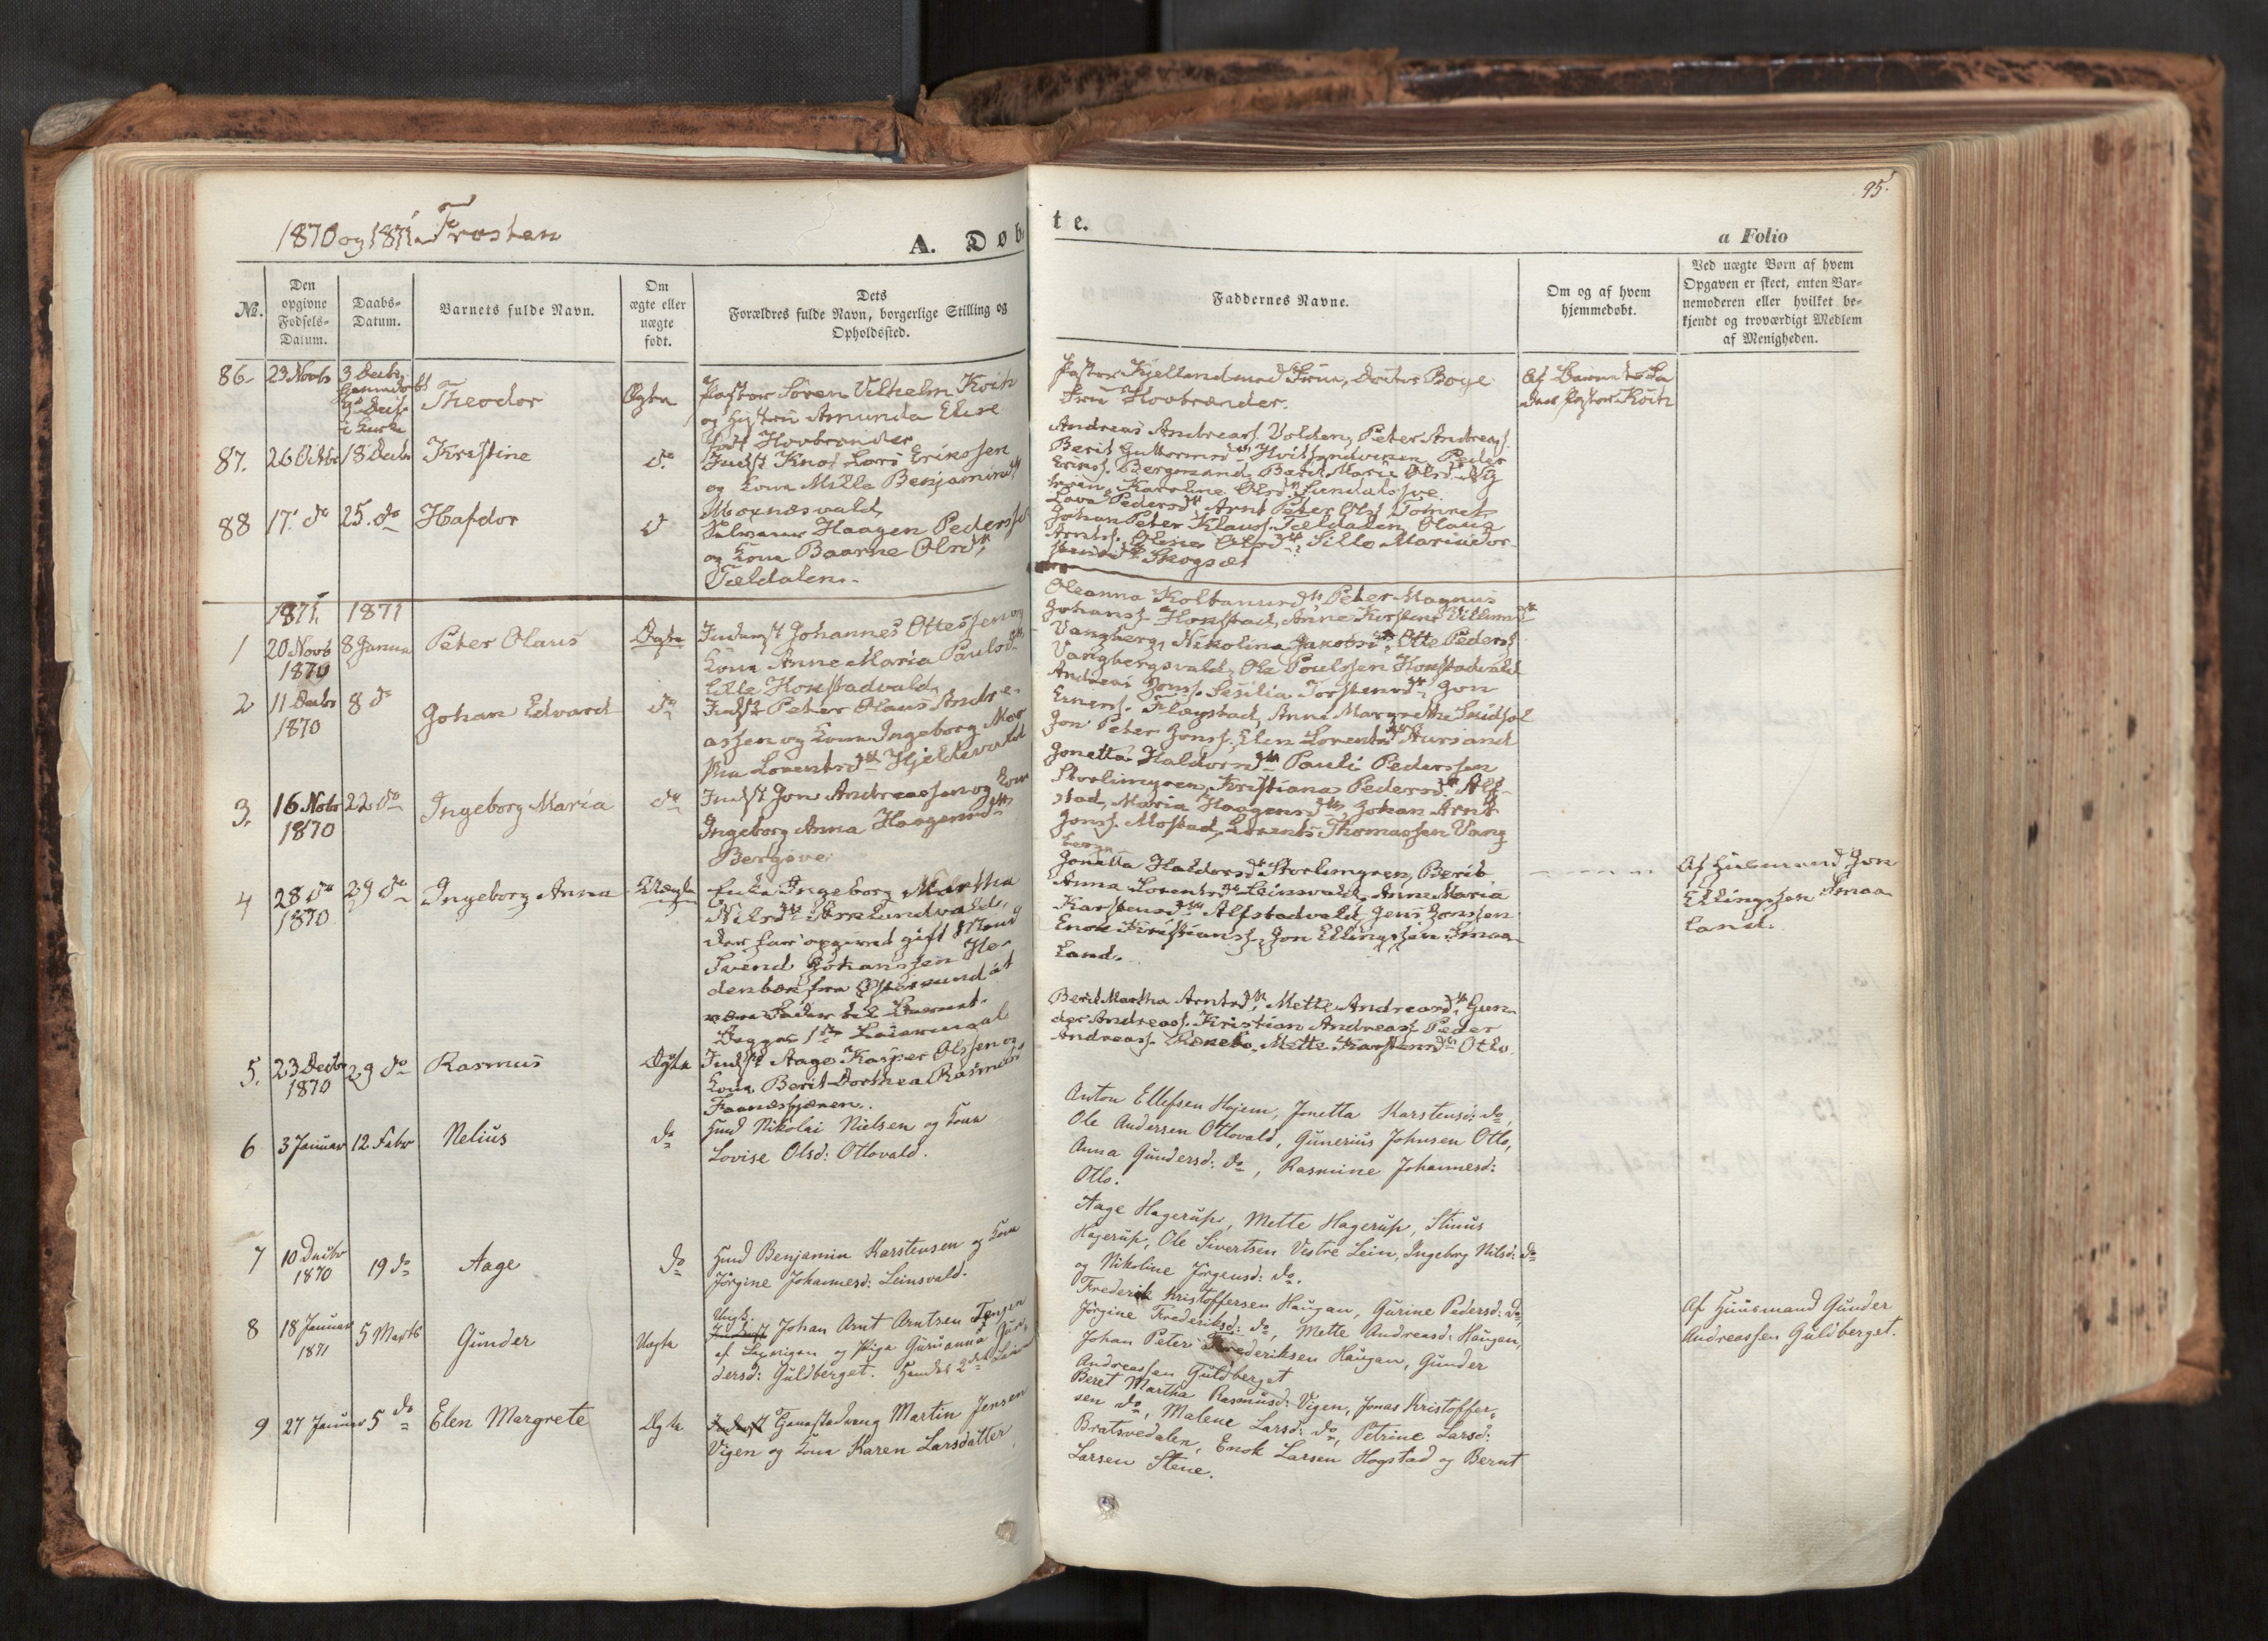 1870 og 1871. Frosten
A. Døb-
te.
95.
a Folio
No.
Den
opgivne
Fødsels-
Datum.
Daabs-
Datum.
Barnets fulde Navn.
Om
ægte eller
uægte
født.
Dets
Forældres fulde Navn, borgerlige Stilling og
Opholdssted.
Faddernes Navne.
Om og af hvem
hjemmedøbt.
Ved uægte Børn af hvem
Opgaven er skeet, enten Bar-
nemoderen eller hvilket be-
kjendt og troværdigt Medlem
af Menigheden.
86.
23 Novb
3 Decbr
Theodor
Ægte
Pastor Sören Vilhelm Koch
og Hustru Amunda Elise
född Hovbrander
Pastor Kjelland med Frue, Doctor Boye
Frue Hovbrander.
87.
26 Octbr
18 Decbr
Kristine
do
Indst Knod Lars Erikssen
og Kone Mille Benjaminsdtr
Moxnæsvald
Andreas Andreass. Volden, Peter Andreass.
Karoline Olsdtr Sundalsøre
88
17. do
25. do
Hafdor
Haagen Pederss
og Kone Baarne Olsdtr
Tældalen.
Lava Pedersdtr Arnt Peter Olss
Johan Peter Klauss. Tældalen, Olaus
Arntss. Oline Olsdtr
Skogsæt
1871. 1871
1
20 Novb
1870
8 Januar
Peter Olaus
Ægte
Indst Johannes Ottessen og
Kone Anne Maria Paulsdtr
lille Hopstadvald
Oleanna Kolbanusdtr, Peter Magnus
Johanss. Hopstad, Anne Kirstine Villumsdtr
Vangberg, Nikolina Jakobsdtr, Otte Pederss
Vangbergsvald, Ole Poulssen Hopstadvald
2
11 Decbr
1870
8 do
Johan Edvard
do
Indst Peter Olaus Andre-
assen og Kone Ingeborg Mar
tha Lorentsdtr Hjeldevald
Andreas Jonss. Sesilia Torstensdtr Jon
Erners. Flægstad, Anne Margrethe
Jon Peter Jonss. Elen Lorentsdtr Aursand
3.
16 Nobr
1870
22 do
Ingeborg Maria
do
Indst Jon Andreassen og Kone
Ingeborg Anna Haagensdtr
Bergsve
Jonetta Haldorsdtr Pauli Pederssen
Storlimyren, Kristiana Pedersdtr Alf-
stad, Maria Haagensdtr Johan Arnt
Jonss. Mostad, Lorents Thomassen Vang
berg
4
28 do
1870
29 do
Ingeborg Anna
Uægte
Enke Ingeborg Martha
Nilsdtr
der har opgivet gift Mand
Svend Johanssen He-
denbæk fra Østersund at
være Fader til Barnet.
Begges 1ste Leiermaal
Jonetta Haldorsdtr Storlimyren, Berit
Anna Lorentsdtr Leinsvald, Anne Maria
Karstensdtr Alfstadvald, Jens Jonssen
Enok Kristianss. Jon Ellingssen Smaa-
land.
Af Huusmand Jon
Ellingssen Smaa-
land.
5.
23 Decbr
1870
29 do
Rasmus
Ægte
Indst Aage Kasper Olssen og
Kone Berit Dorthea Rasmusd
Faanæsfjæren.
Berit Martha Arntsdtr, Mette Andreasdtr Gun-
der Andreass. Kristian Andreass. Peder
Andreass. Mette Karstensdtr Otlo.
6
3 Januar
12 Febr
Nelius
do
Huusmd Nikolai Nielsen og Kone
Lovise Olsd: Otlovald.
Anton Ellefsen Hojem, Jonetta Karstensd: do,
Ole Andersen Otlovald, Gunerius Johnsen Otlo,
Anna Gundersd: do, Rasmine Johannesd:
Otlo.
7
10 Decbr
1870
19 do
Aage
do
Huusmd Benjamin Karstensen og Kone
Jörgine Johannesd: Leinsvald.
Aage Hagerup, Mette Hagerup, Stinus
Hagerup, Ole Sivertsen Vestre Lein, Ingeborg Nilsd: do
og Nikoline Jörgensd: do.
8
18 Januar
1871
5 Marts
Gunder
Uægte
Ungk.
Johan Arnt Arntsen
af Lexvigen og Pige Gurianna Gun-
dersd: Guldberget.
Frederik Kristoffersen Haugan, Gurine Pedersd: do,
Jörgine Frederiksd: do, Mette Andreasd: Haugan,
Johan Peter Frederiksen Haugan, Gunder
Andreassen Guldberget
Af Huusmand Gunder
Andreassen Guldberget.
9
27 Januar
5 do
Elen Margrete
Ægte
Martin Jensen
Vigen og Kone Karen Larsdatter
Beret Martha Rasmusd: Vigen, Jonas Kristoffer-
sen do, Malene Larsd: do, Petrine Larsd:
Bratsvedalen, Enok Larsen Hogstad og Bernt
Larsen Stene.